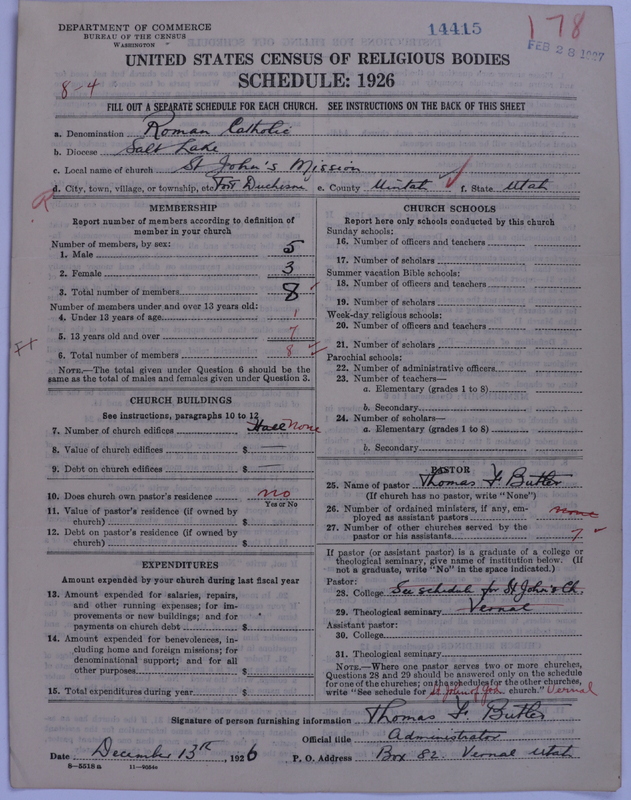 DEPARTMENT OF COMMERCE
BUREAU OF THE CENSUS
WASHINGTON
14415
178
FEB 28 1927
UNITED STATES CENSUS OF RELIGIOUS BODIES
SCHEDULE: 1926
8-4
FILL OUT A SEPARATE SCHEDULE FOR EACH CHURCH. SEE INSTRUCTIONS ON THE BACK OF THIS SHEET
a. Denomination Roman Catholic
b. Diocese Salt Lake
c. Local name of church St John's Mission
d. City, town, village, or township, etc Fort Duchesne e. County Uintah f. State Utah
MEMBERSHIP
Report number of members according to definition of
member in your church
Number of members, by sex:
1. Male 5
2. Female 3
3. Total number of members 8
Number of members under and over 13 years old:
4. Under 13 years of age 1
5. 13 years old and over 7
6. Total number of members 8
NOTE.—The total given under Question 6 should be
same as the total of males and females given under Question 3.
CHURCH BUILDINGS
See instructions, paragraphs 10 to 12
7. Number of church edifices Hall None
8. Value of church edifices $ —
9. Debt on church edifices $ —
10. Does church own pastor's residence no
Yes or No
11. Value of pastor's residence (if owned by
church) $
12. Debt on pastor's residence (if owned by
church) $
EXPENDITURES
Amount expended by your church during last fiscal year
13. Amount expended for salaries, repairs,
and other running expenses; for im-
provements or new buildings; and for
payments on church debt $
14. Amount expended for benevolences, in-
cluding home and foreign missions; for
denominational support; and for all
other purposes $
15. Total expenditures during year $
CHURCH SCHOOLS
Report here only schools conducted by this church
Sunday schools:
16. Number of officers and teachers
17. Number of scholars
Summer vacation Bible schools:
18. Number of officers and teachers
19. Number of scholars
Week-day religious schools:
20. Number of officers and teachers
21. Number of scholars
Parochial schools:
22. Number of administrative officers
23. Number of teachers—
a. Elementary (grades 1 to 8)
b. Secondary
24. Number of scholars—
a. Elementary (grades 1 to 8)
b. Secondary
PASTOR
25. Name of pastor Thomas F Butler
(If church has no pastor, write "None")
26. Number of ordained ministers, if any, em-
ployed as assistant pastors none
27. Number of other churches served by the
pastor or his assistants 7
If pastor (or assistant pastor) is a graduate of a college or
theological seminary, give name of institution below. (If
not a graduate, write "No" in the space indicated.)
Pastor:
28. College See schedule for St John's Ch.
29. Theological seminary Vernal
Assistant pastor:
30. College
31. Theological seminary
NOTE.—Where one pastor serves two or more churches,
Questions 28 and 29 should be answered only on the schedule
for one of the churches; on the schedules for the other churches,
write "See schedule for St John of church." Vernal
Signature of person furnishing information Thomas F Butler
Official title Administrator
Date December 13th, 1926 P. O. Address Box 82. Vernal Utah
8—5518 a 11—9354a